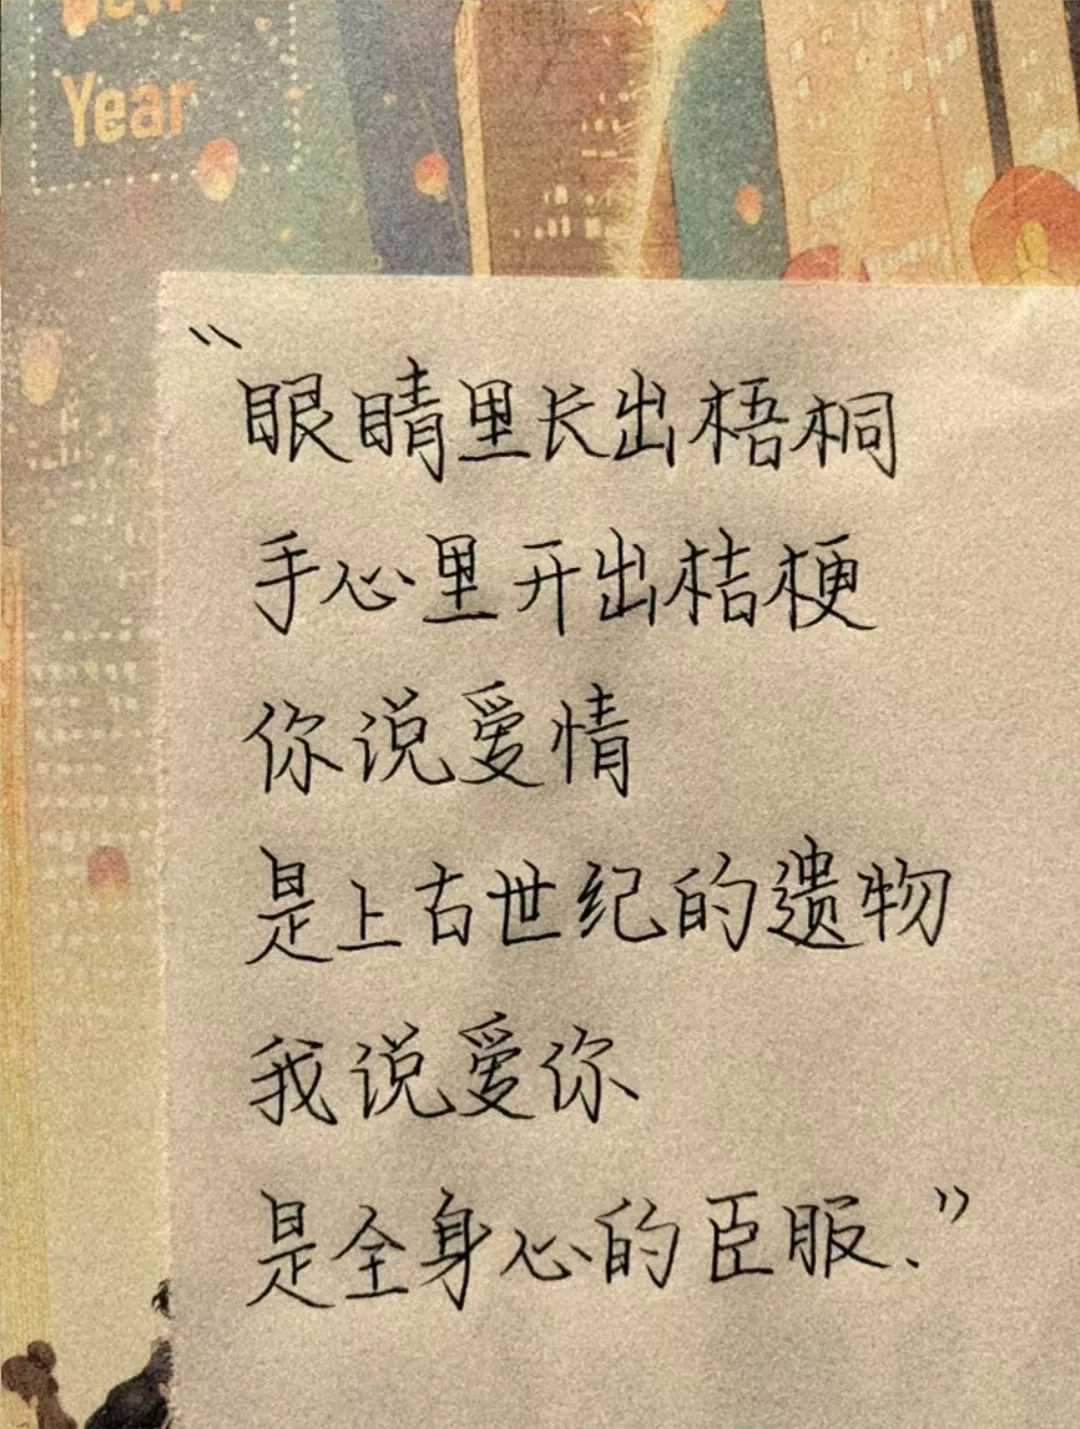 New
Year
“眼睛里长出梧桐
手心里开出桔梗
你说爱情
是上古世纪的遗物
我说爱你
是全身心的臣服、”